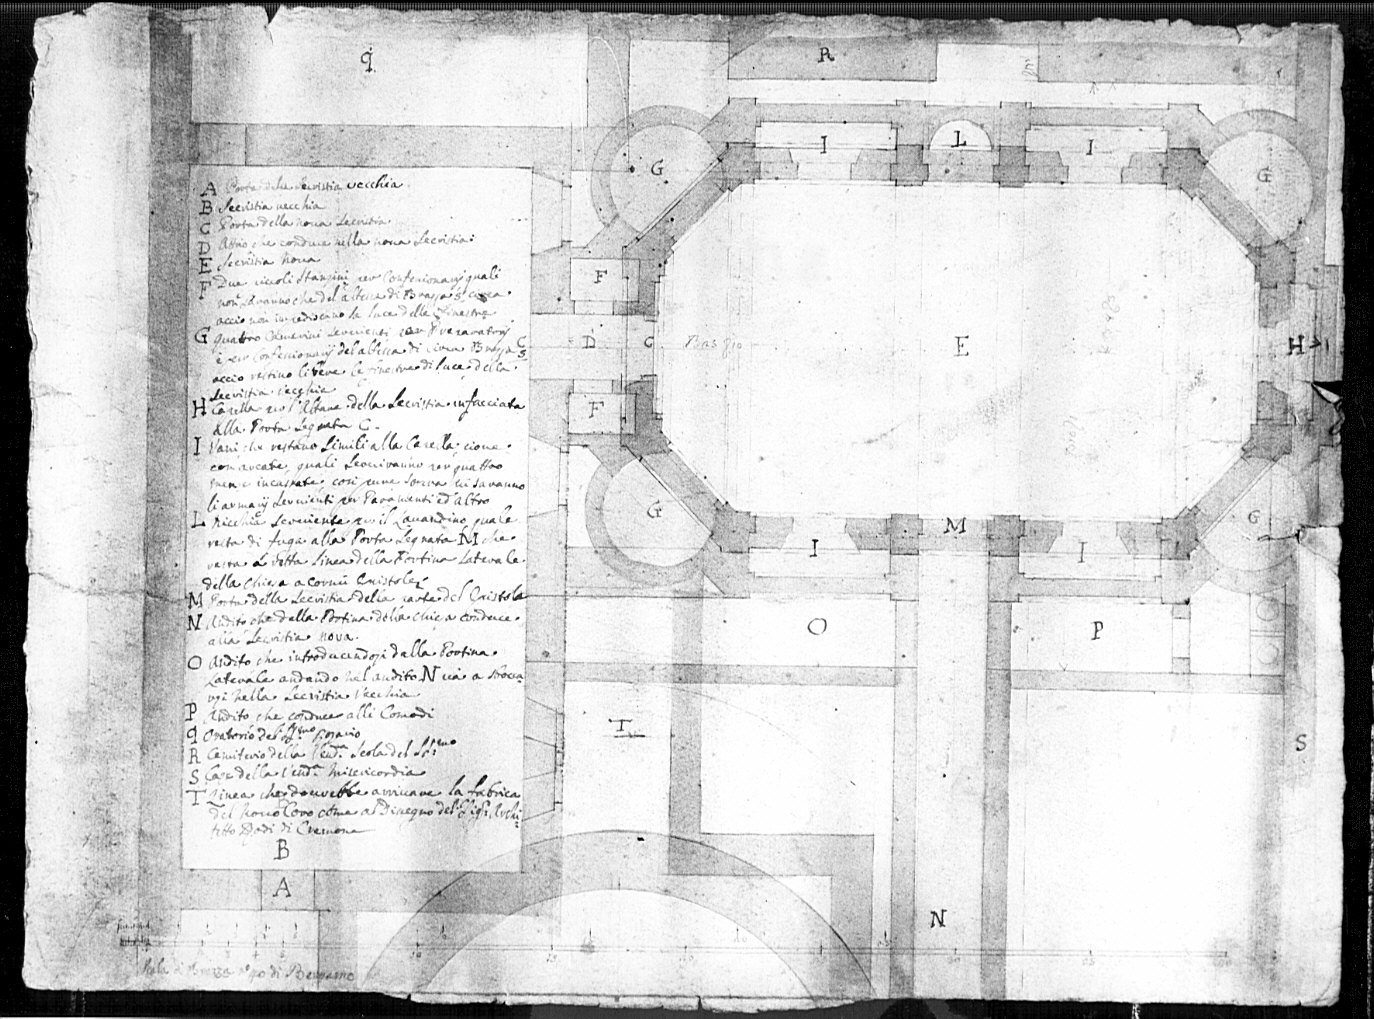 q
R
A Porta della Secristia vecchia.
B Secristia vecchia
C Porta della nova Secristia
D Atrio che conduce nella nova Secristia:
E Secristia nova
F Due piccoli Stanzini per Confessionarij quali
non saranno che del altezza di Brazza 5 circa
accio non impediscano la luce delle Finestre
G quattro Camerini Servienti per Preparatorij
è per confessionarij del altezza di circa Brazza 5
accio restino libere le finestre di luce della
Secristia vecchia
H Capella per l'Altare della Secristia infacciata
alla Porta Segnata C.
I Vani che restano Simili alla Capella, cione
con arcate, quali Serviranno per quattro
incastrate, così pure sopra vi saranno
li armarij Servienti per Paramenti ed altro
L Nicchia Serviente per il Lavandino quale
resta di fuga alla Porta Segnata M che
resta à retta Linea della Portina Laterale
della Chiesa a cornù Epistole
M Porta della Secristia della parte del Epistola
N Andito che della Portina della chiesa conduce
alla Secristia nova.
O Andito che introducendosi della Portina
Laterale andando nel andito N via a
nella Secristia Vecchia
P Andito che conduce alli Comodi
q Oratorio del
R Cemiterio della Vend.a Scola del SS.mo
S Case della Vend.a Misericordia
T Linea che dovrebbe arrivare la fabrica
del novo Coro come al Disegno del Sig.r Archi
tetto Dodi di Cremona
B
A
G
I
L
I
G
F
D
C
E
H
F
G
I
M
I
G
O
P
T
S
N
Scala di Brazza n.o 40 di Bergamo